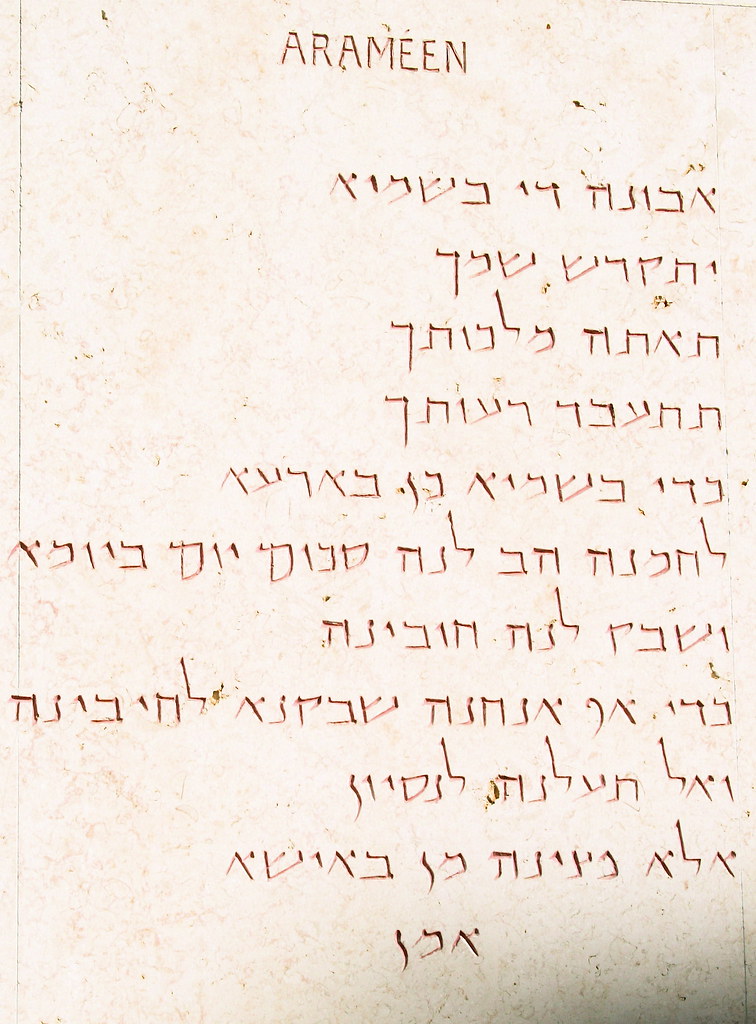 ARAMÉEN
אבונה די בשמיא
יתקדש שמך
תאתה מלכותך
תתעבד רעותך
כדי בשמיא כן בארעא
לחמנה הב לנה סכום יום ביומא
ושבק לנה חובינה
כדי אף אנחנה שבקנא לחיבינה
ואל תעלנה לנסיון
אלא פצינה מן באישא
אמן